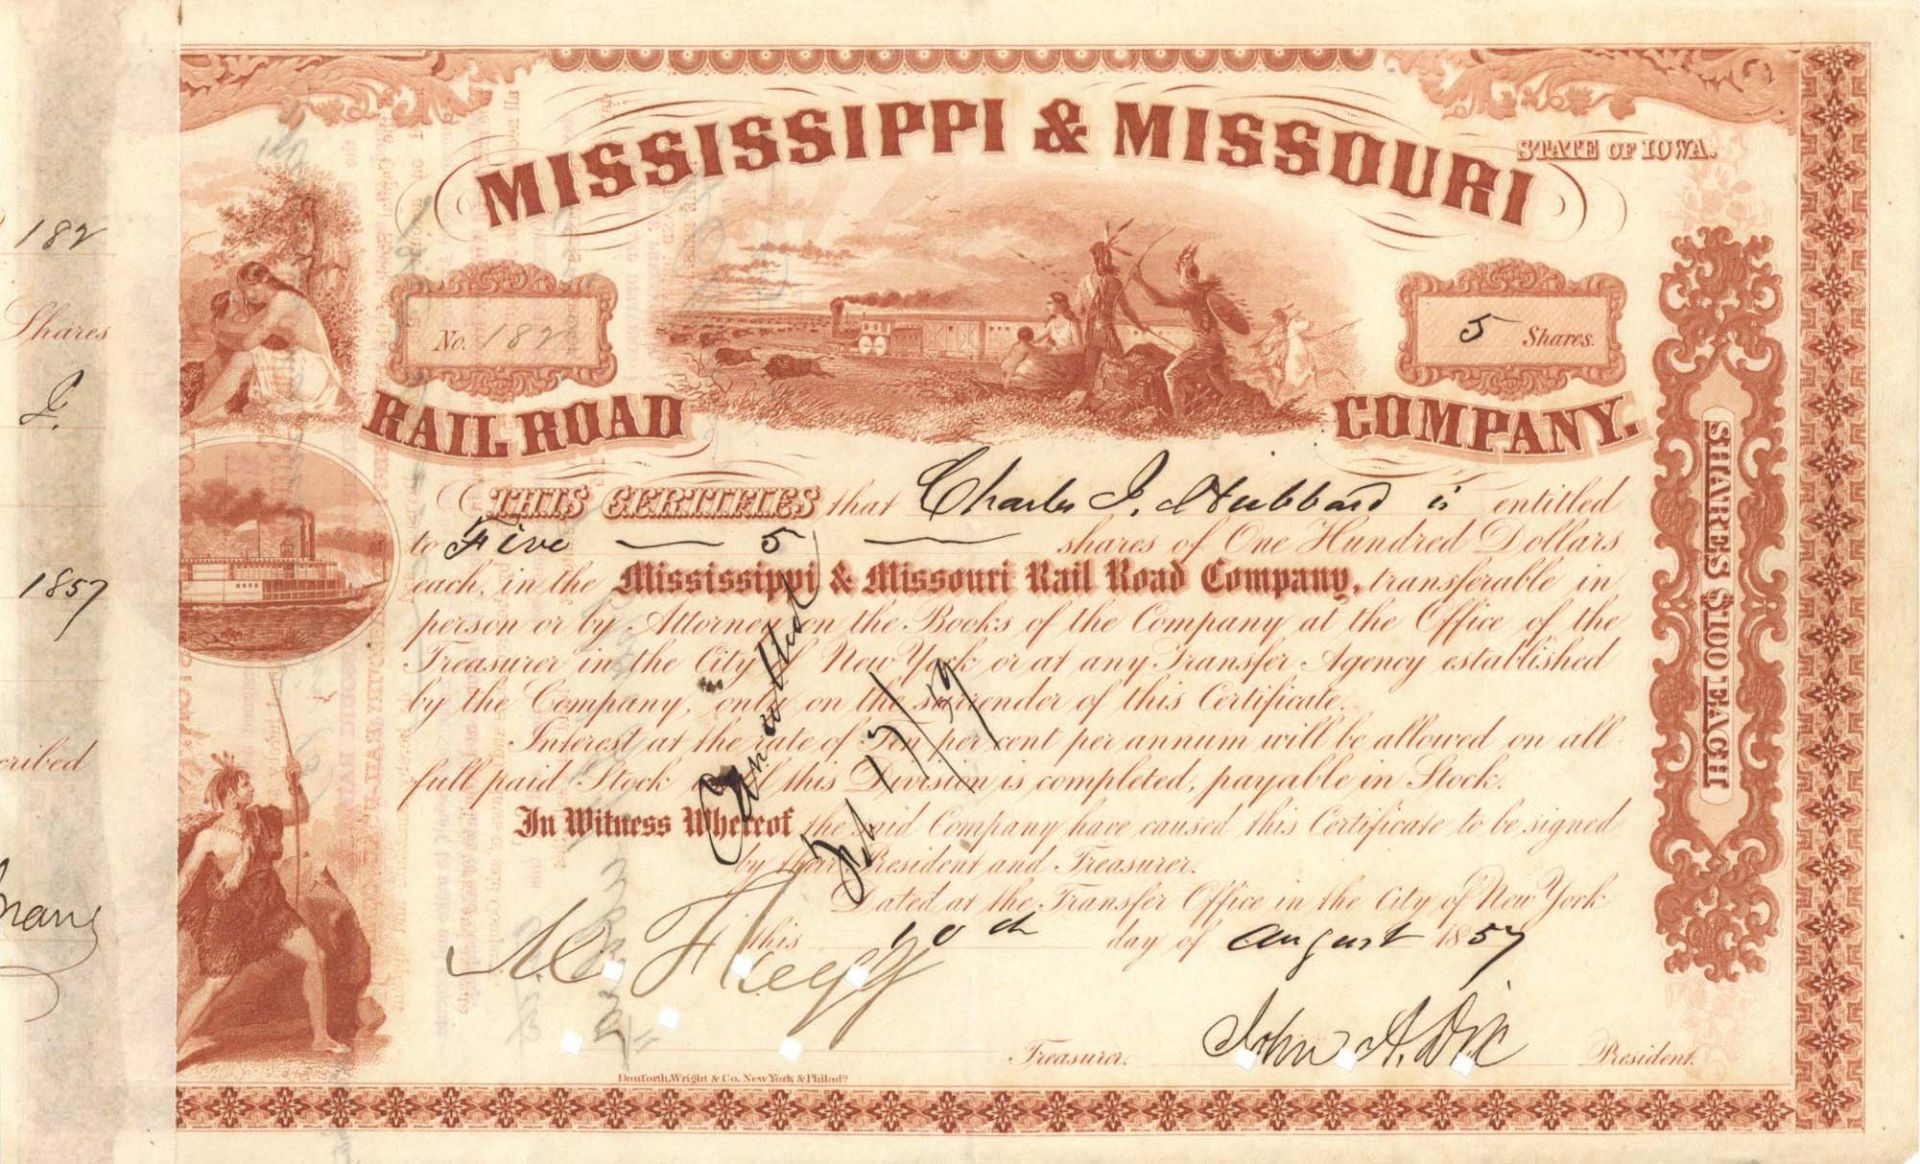 MISSISSIPPI & MISSOURI
STATE OF IOWA.
No. 182
5 Shares.
RAIL ROAD
COMPANY.
THIS CERTIFIES that Charles J. Hubbard is entitled
to Five — 5 — shares of One Hundred Dollars
each, in the Mississippi & Missouri Rail Road Company, transferable in
person or by Attorney on the Books of the Company at the Office of the
Treasurer in the City of New York or at any Transfer Agency established
by the Company, only on the surrender of this Certificate.
Interest at the rate of Ten per cent per annum will be allowed on all
full paid Stock this Division is completed, payable in Stock.
In Witness Whereof the said Company have caused this Certificate to be signed
by their President and Treasurer.
Dated at the Transfer Office in the City of New York
this 10th day of August 1857
Cancelled
Feb 17/59
John A. Dix
Treasurer.
President.
Danforth, Wright & Co. New York & Philada
SHARES $100 EACH
182
Shares
J.
1857
cribed